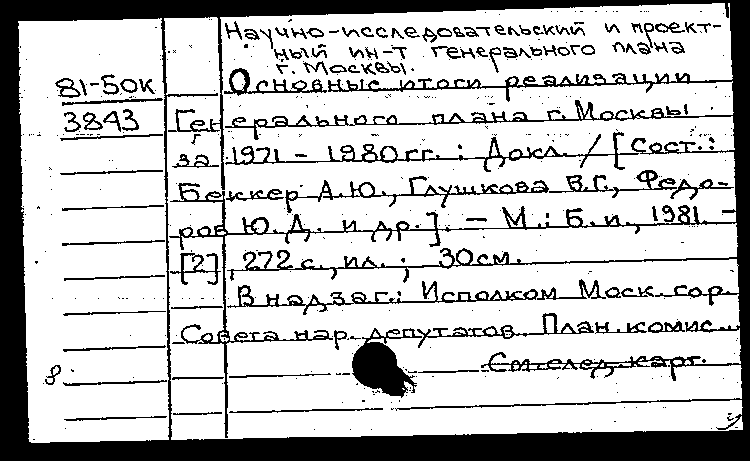 Научно-исследовательский и проект-
ный ин-т генерального плана
г. Москвы.
81-50к
Основные итоги реализации
3843
Генерального плана г. Москвы
за 1971 - 1980 гг. : Докл. / [Сост.:
Беккер А.Ю., Глушкова В.Г., Федо-
ров Ю.Д. и др.]. - М.: Б.и., 1981. -
[2], 272 с., ил.; 30 см.
В надзаг.: Исполком Моск. гор.
Совета нар. депутатов. План. комис...
См. след. карт.
8.